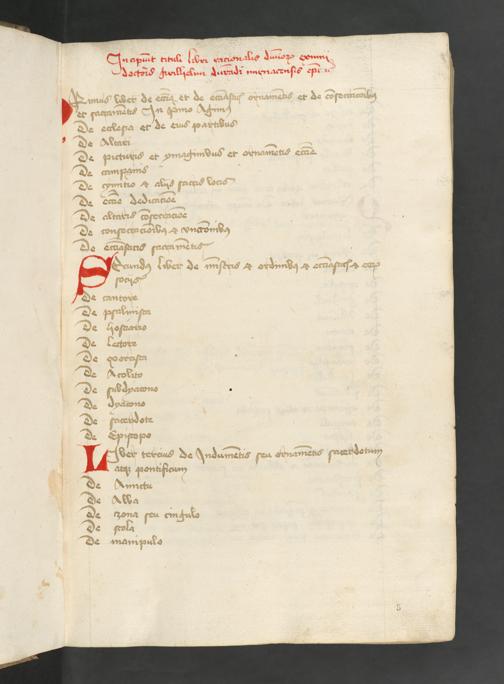 Incipiunt tituli libri racionalis divinorum eximii
doctoris Guillielmi durandi mimacensis epi
Rimus liber de eccia et de ecciasticis ornametis et de cosecracoibus
et sacrametis In primo Agitur
De eclesia et de eius partibus
De Altari
De picturis et ymaginibus et ornametis eccie
De campanis
De cymitio & alijs sacris locis
De eccie dedicacoe
De altaris cosecracoe
De consecracoibus & unctionibus
De ecciasticis sacrametis
Secundus liber de mistris & ordinibus & ecciasticis &
socijs
De cantore
De psalmista
De hostiario
De Lectore
De exorcista
De Acolito
De subdyacono
De dyacono
De sacerdote
De Episcopo
Liber tercius de Indumetis seu ornametis sacerdotum
atque pontificum
De Amictu
De Alba
De zona seu cingulo
De stola
De manipulo
5